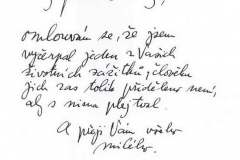 omlouvám se, že jsem
vyčerpal jeden z Vašich
životních zážitků; člověku
jich zas tolik přiděleno není,
aby s nima plejtval.
A přeji Vám všeho
milého.